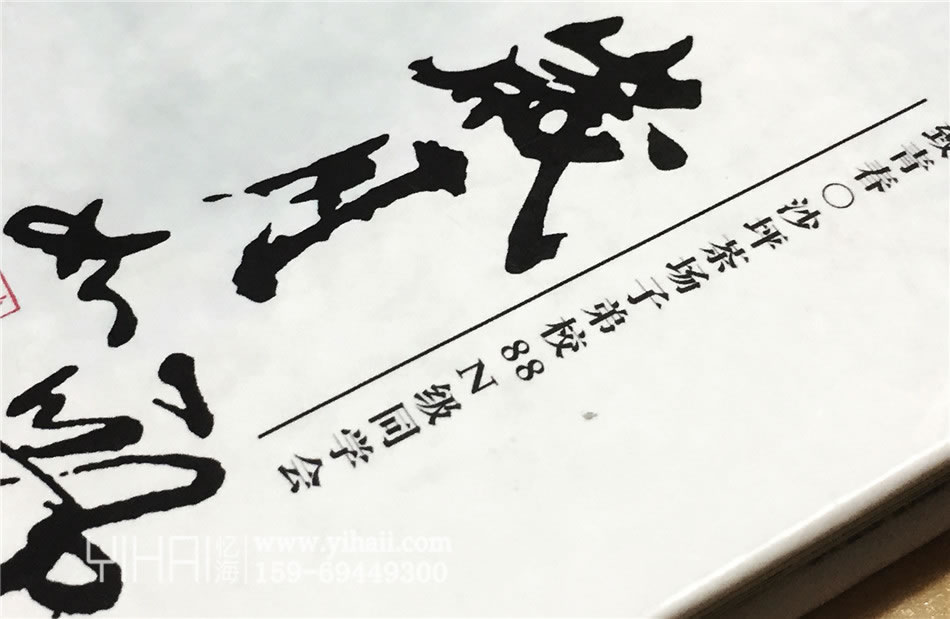 歲月如歌
致青春〇沙坪茶场子弟校88N级同学会
YIHAI 忆海
www.yihaii.com
159-69449300